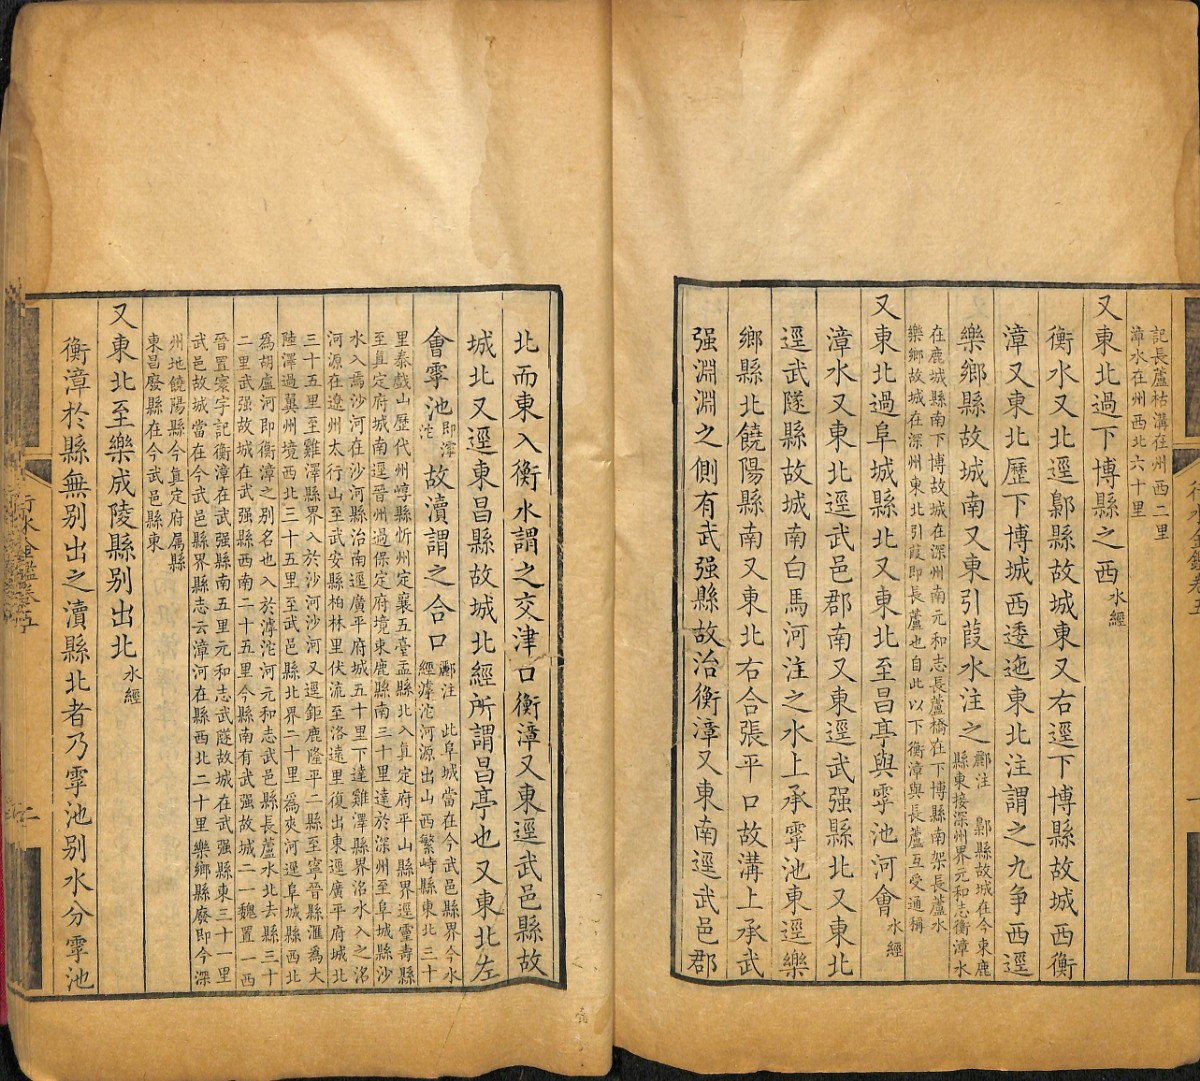 記長蘆枯溝在州西二里
漳水在州西北六十里
又東北過下博縣之西水經
衡水又北逕鄡縣故城東又右逕下博縣故城西衡
漳又東北歷下博城西逶迤東北注謂之九爭西逕
樂鄉縣故城南又東引葭水注之酈注 鄡縣故城在今東鹿
縣東接深州界元和志衡漳水
在鹿城縣南下博故城在深州南元和志長蘆橋在下博縣南架長蘆水
樂鄉故城在深州東北引葭即長蘆也自此以下衡漳與長蘆互受通稱
又東北過阜城縣北又東北至昌亭與虖池河會水經
漳水又東北逕武邑郡南又東逕武强縣北又東北
逕武隧縣故城南白馬河注之水上承虖池東逕樂
鄉縣北饒陽縣南又東北右合張平口故溝上承武
强淵淵之側有武强縣故治衡漳又東南逕武邑郡
北而東入衡水謂之交津口衡漳又東逕武邑縣故
城北又逕東昌縣故城北經所謂昌亭也又東北左
會虖池即滹
沱故瀆謂之合口酈注 此阜城當在今武邑縣界今水
經滹沱河源出山西繁峙縣東北三十
里泰戲山歷代州崞縣忻州定襄五臺盂縣北入真定府平山縣界逕靈壽縣
至真定府城南逕晉州過保定府境東鹿縣南三十里達於深州至阜城縣沙
水入焉沙河在沙河縣治南逕廣平府城五十里下達雞澤縣界洺水入之洺
河源在遼州太行山至武安縣柏林里伏流至洛遠里復出東逕廣平府城北
三十五里至雞澤縣界入於沙河沙河又逕鉅鹿隆平二縣至寧晉縣滙為大
陸澤過冀州境西北三十五里至武邑縣北界二十里為夾河逕阜城縣西北
為胡盧河即衡漳之别名也入於滹沱河元和志武邑縣長蘆水北去縣三十
二里武强故城在武强縣西南二十五里今縣南有武强故城二一魏置一西
晉置寰宇記衡漳在武强縣南五里元和志武隧故城在武强縣東三十一里
武邑故城當在今武邑縣界縣志云漳河在縣西北二十里樂鄉縣廢即今深
州地饒陽縣今真定府属縣
東昌廢縣在今武邑縣東
又東北至樂成陵縣别出北水經
衡漳於縣無别出之瀆縣北者乃虖池别水分虖池
行水金鑑卷五
二